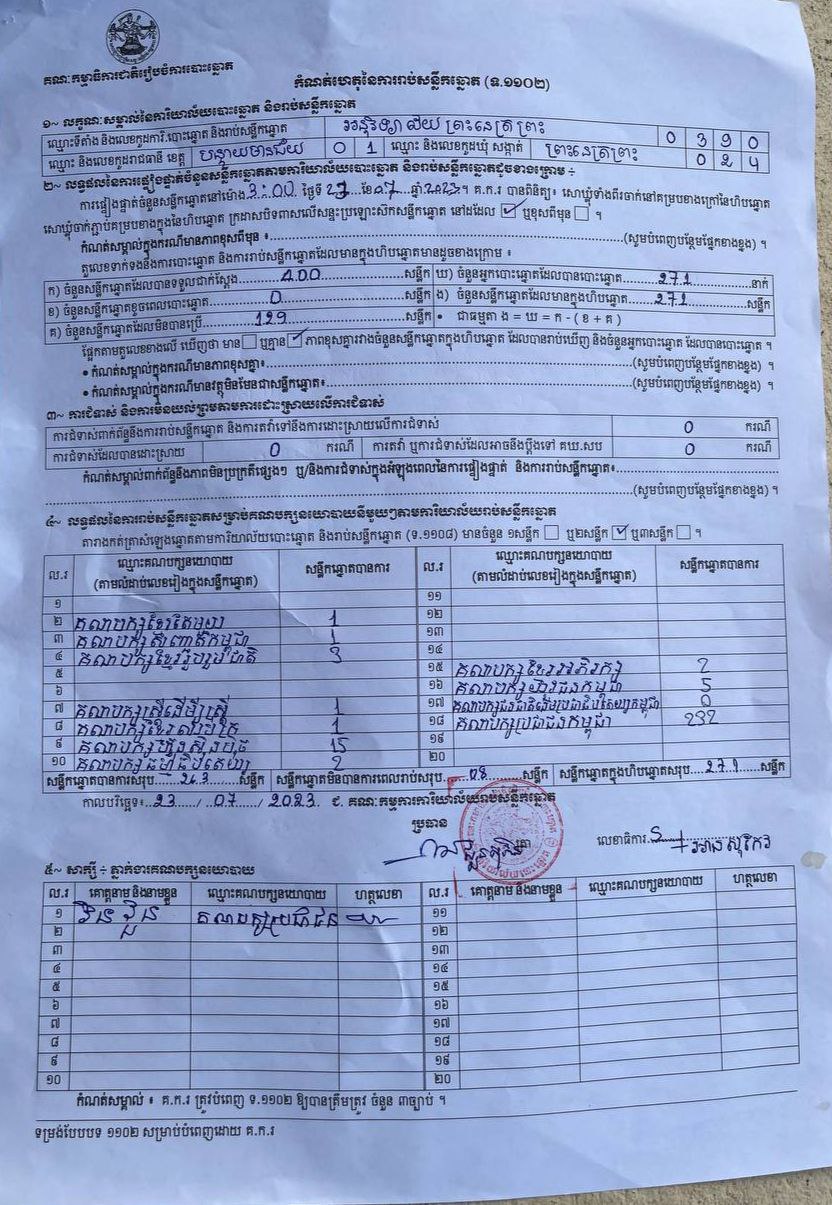 គណៈកម្មាធិការជាតិរៀបចំការបោះឆ្នោត
កំណត់ហេតុនៃការរាប់សន្លឹកឆ្នោត (ទ.១១០២)
១~ លក្ខណៈសម្គាល់នៃការិយាល័យបោះឆ្នោត និងរាប់សន្លឹកឆ្នោត
ឈ្មោះទីតាំង និងលេខកូដការិ.បោះឆ្នោត និងរាប់សន្លឹកឆ្នោត អនុវិទ្យាល័យ ព្រះនេត្រព្រះ 0 3 9 0
ឈ្មោះ និងលេខកូដរាជធានី ខេត្ត បន្ទាយមានជ័យ 0 1 ឈ្មោះ និងលេខកូដឃុំ សង្កាត់ ព្រះនេត្រព្រះ 0 2 4
២~ លទ្ធផលនៃការផ្ទៀងផ្ទាត់ចំនួនសន្លឹកឆ្នោតតាមការិយាល័យបោះឆ្នោត និងរាប់សន្លឹកឆ្នោតដូចខាងក្រោម ÷
ការផ្ទៀងផ្ទាត់ចំនួនសន្លឹកឆ្នោតនៅម៉ោង 3:00 ថ្ងៃទី 23 ខែ 07 ឆ្នាំ 2023 ។ គ.ក.រ បានពិនិត្យ៖ សោឃ្លុំទាំងពីរចាក់នៅគម្របខាងក្រៅនៃហិបឆ្នោត
សោឃ្លុំចាក់ភ្ជាប់គម្របខាងក្នុងនៃហិបឆ្នោត ក្រដាសបិទពាសលើសន្ទះប្រឡោះស៊កសន្លឹកឆ្នោត នៅដដែល ☑ ឬខុសពីមុន ☐ ។
កំណត់សម្គាល់ក្នុងករណីមានភាពខុសពីមុន ៖ (សូមបំពេញបន្ថែមផ្នែកខាងខ្នង) ។
តួលេខទាក់ទងនឹងការបោះឆ្នោត និងការរាប់សន្លឹកឆ្នោតដែលមានក្នុងហិបឆ្នោតមានដូចខាងក្រោម ៖
ក) ចំនួនសន្លឹកឆ្នោតដែលបានទទួលជាក់ស្តែង 400 សន្លឹក ឃ) ចំនួនអ្នកបោះឆ្នោតដែលបានបោះឆ្នោត 271 នាក់
ខ) ចំនួនសន្លឹកឆ្នោតខូចពេលបោះឆ្នោត 0 សន្លឹក ង) ចំនួនសន្លឹកឆ្នោតដែលមានក្នុងហិបឆ្នោត 271 សន្លឹក
គ) ចំនួនសន្លឹកឆ្នោតដែលមិនបានប្រើ 129 សន្លឹក • ជាធម្មតា ង = ឃ = ក - ( ខ + គ )
ផ្អែកតាមតួលេខខាងលើ ឃើញថា មាន ☐ ឬគ្មាន ☑ ភាពខុសគ្នារវាងចំនួនសន្លឹកឆ្នោតក្នុងហិបឆ្នោត ដែលបានរាប់ឃើញ និងចំនួនអ្នកបោះឆ្នោត ដែលបានបោះឆ្នោត ។
• កំណត់សម្គាល់ក្នុងករណីមានភាពខុសគ្នា៖ (សូមបំពេញបន្ថែមផ្នែកខាងខ្នង) ។
• កំណត់សម្គាល់ក្នុងករណីមានវត្ថុមិនមែនជាសន្លឹកឆ្នោត៖ (សូមបំពេញបន្ថែមផ្នែកខាងខ្នង) ។
៣~ ការជំទាស់ និងការមិនយល់ព្រមតាមការដោះស្រាយលើការជំទាស់
ការជំទាស់ពាក់ព័ន្ធនឹងការរាប់សន្លឹកឆ្នោត និងការតវ៉ាទៅនឹងការដោះស្រាយលើការជំទាស់ 0 ករណី
ការជំទាស់ដែលបានដោះស្រាយ 0 ករណី ការតវ៉ា ឬការជំទាស់ដែលអាចនឹងប្តឹងទៅ គឃ.សប 0 ករណី
កំណត់សម្គាល់ពាក់ព័ន្ធនឹងភាពមិនប្រក្រតីផ្សេងៗ ឬ/និងការជំទាស់ក្នុងអំឡុងពេលនៃការផ្ទៀងផ្ទាត់ និងការរាប់សន្លឹកឆ្នោត៖
(សូមបំពេញបន្ថែមផ្នែកខាងខ្នង) ។
៤~ លទ្ធផលនៃការរាប់សន្លឹកឆ្នោតសម្រាប់គណបក្សនយោបាយនីមួយៗតាមការិយាល័យរាប់សន្លឹកឆ្នោត
តារាងកត់ត្រាសំឡេងឆ្នោតតាមការិយាល័យបោះឆ្នោត និងរាប់សន្លឹកឆ្នោត (ទ.១១០៨) មានចំនួន ១សន្លឹក ☐ ឬ២សន្លឹក ☑ ឬ៣សន្លឹក ☐ ។
ល.រ ឈ្មោះគណបក្សនយោបាយ (តាមលំដាប់លេខរៀងក្នុងសន្លឹកឆ្នោត) សន្លឹកឆ្នោតបានការ ល.រ ឈ្មោះគណបក្សនយោបាយ (តាមលំដាប់លេខរៀងក្នុងសន្លឹកឆ្នោត) សន្លឹកឆ្នោតបានការ
១ ១១
២ គណបក្សខ្មែរតែមួយ 1 ១២
៣ គណបក្ស កម្ពុជា 1 ១៣
៤ គណបក្សខ្មែររួបរួមជាតិ 3 ១៤
៥ ១៥ គណបក្សខ្មែរអភិរក្ស 2
៦ ១៦ គណបក្សយុវជនកម្ពុជា 5
៧ គណបក្សស្ត្រីដើម្បីស្ត្រី 1 ១៧ គណបក្សជនជាតិដើមប្រជាធិបតេយ្យកម្ពុជា 0
៨ គណបក្សខ្មែរឈប់ក្រ 1 ១៨ គណបក្សប្រជាជនកម្ពុជា 232
៩ គណបក្សហ្វ៊ុនស៊ិនប៉ិច 15 ១៩
១០ គណបក្សធម្មាធិបតេយ្យ 2 ២០
សន្លឹកឆ្នោតបានការសរុប 263 សន្លឹក សន្លឹកឆ្នោតមិនបានការពេលរាប់សរុប 08 សន្លឹក សន្លឹកឆ្នោតក្នុងហិបឆ្នោតសរុប 271 សន្លឹក
កាលបរិច្ឆេទ៖ 23 / 07 / 2023 ជ. គណៈកម្មការការិយាល័យរាប់សន្លឹកឆ្នោត
ប្រធាន
លេខាធិការ
៥~ សាក្សី ÷ ភ្នាក់ងារគណបក្សនយោបាយ
ល.រ គោត្តនាម និងនាមខ្លួន ឈ្មោះគណបក្សនយោបាយ ហត្ថលេខា ល.រ គោត្តនាម និងនាមខ្លួន ឈ្មោះគណបក្សនយោបាយ ហត្ថលេខា
១ គណបក្សប្រជាជន ១១
២ ១២
៣ ១៣
៤ ១៤
៥ ១៥
៦ ១៦
៧ ១៧
៨ ១៨
៩ ១៩
១០ ២០
កំណត់សម្គាល់ ៖ គ.ក.រ ត្រូវបំពេញ ទ.១១០២ ឱ្យបានត្រឹមត្រូវ ចំនួន ៣ច្បាប់ ។
ទម្រង់បែបបទ ១១០២ សម្រាប់បំពេញដោយ គ.ក.រ